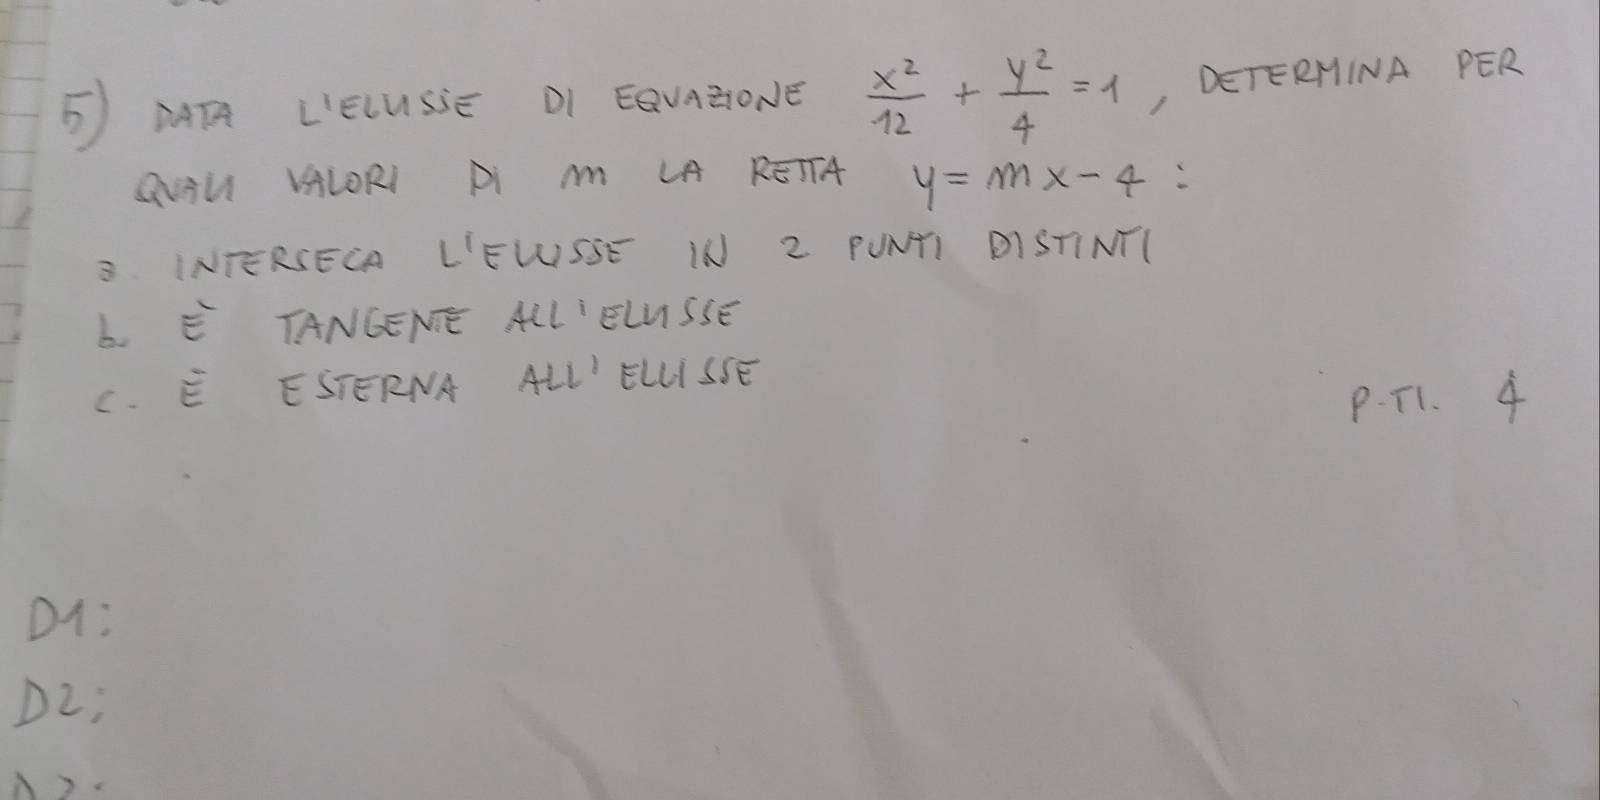 5) DATA L'ELLISSE DI EQUAZIONE x²/12 + y²/4 = 1, DETERMINA PER
QUALI VALORI DI m LA RETTA y = mx - 4 :
a. INTERSECA L'ELLISSE IN 2 PUNTI DISTINTI
b. È TANGENTE ALL'ELLISSE
c. È ESTERNA ALL'ELLISSE
P.TI. 4
D1:
D2: